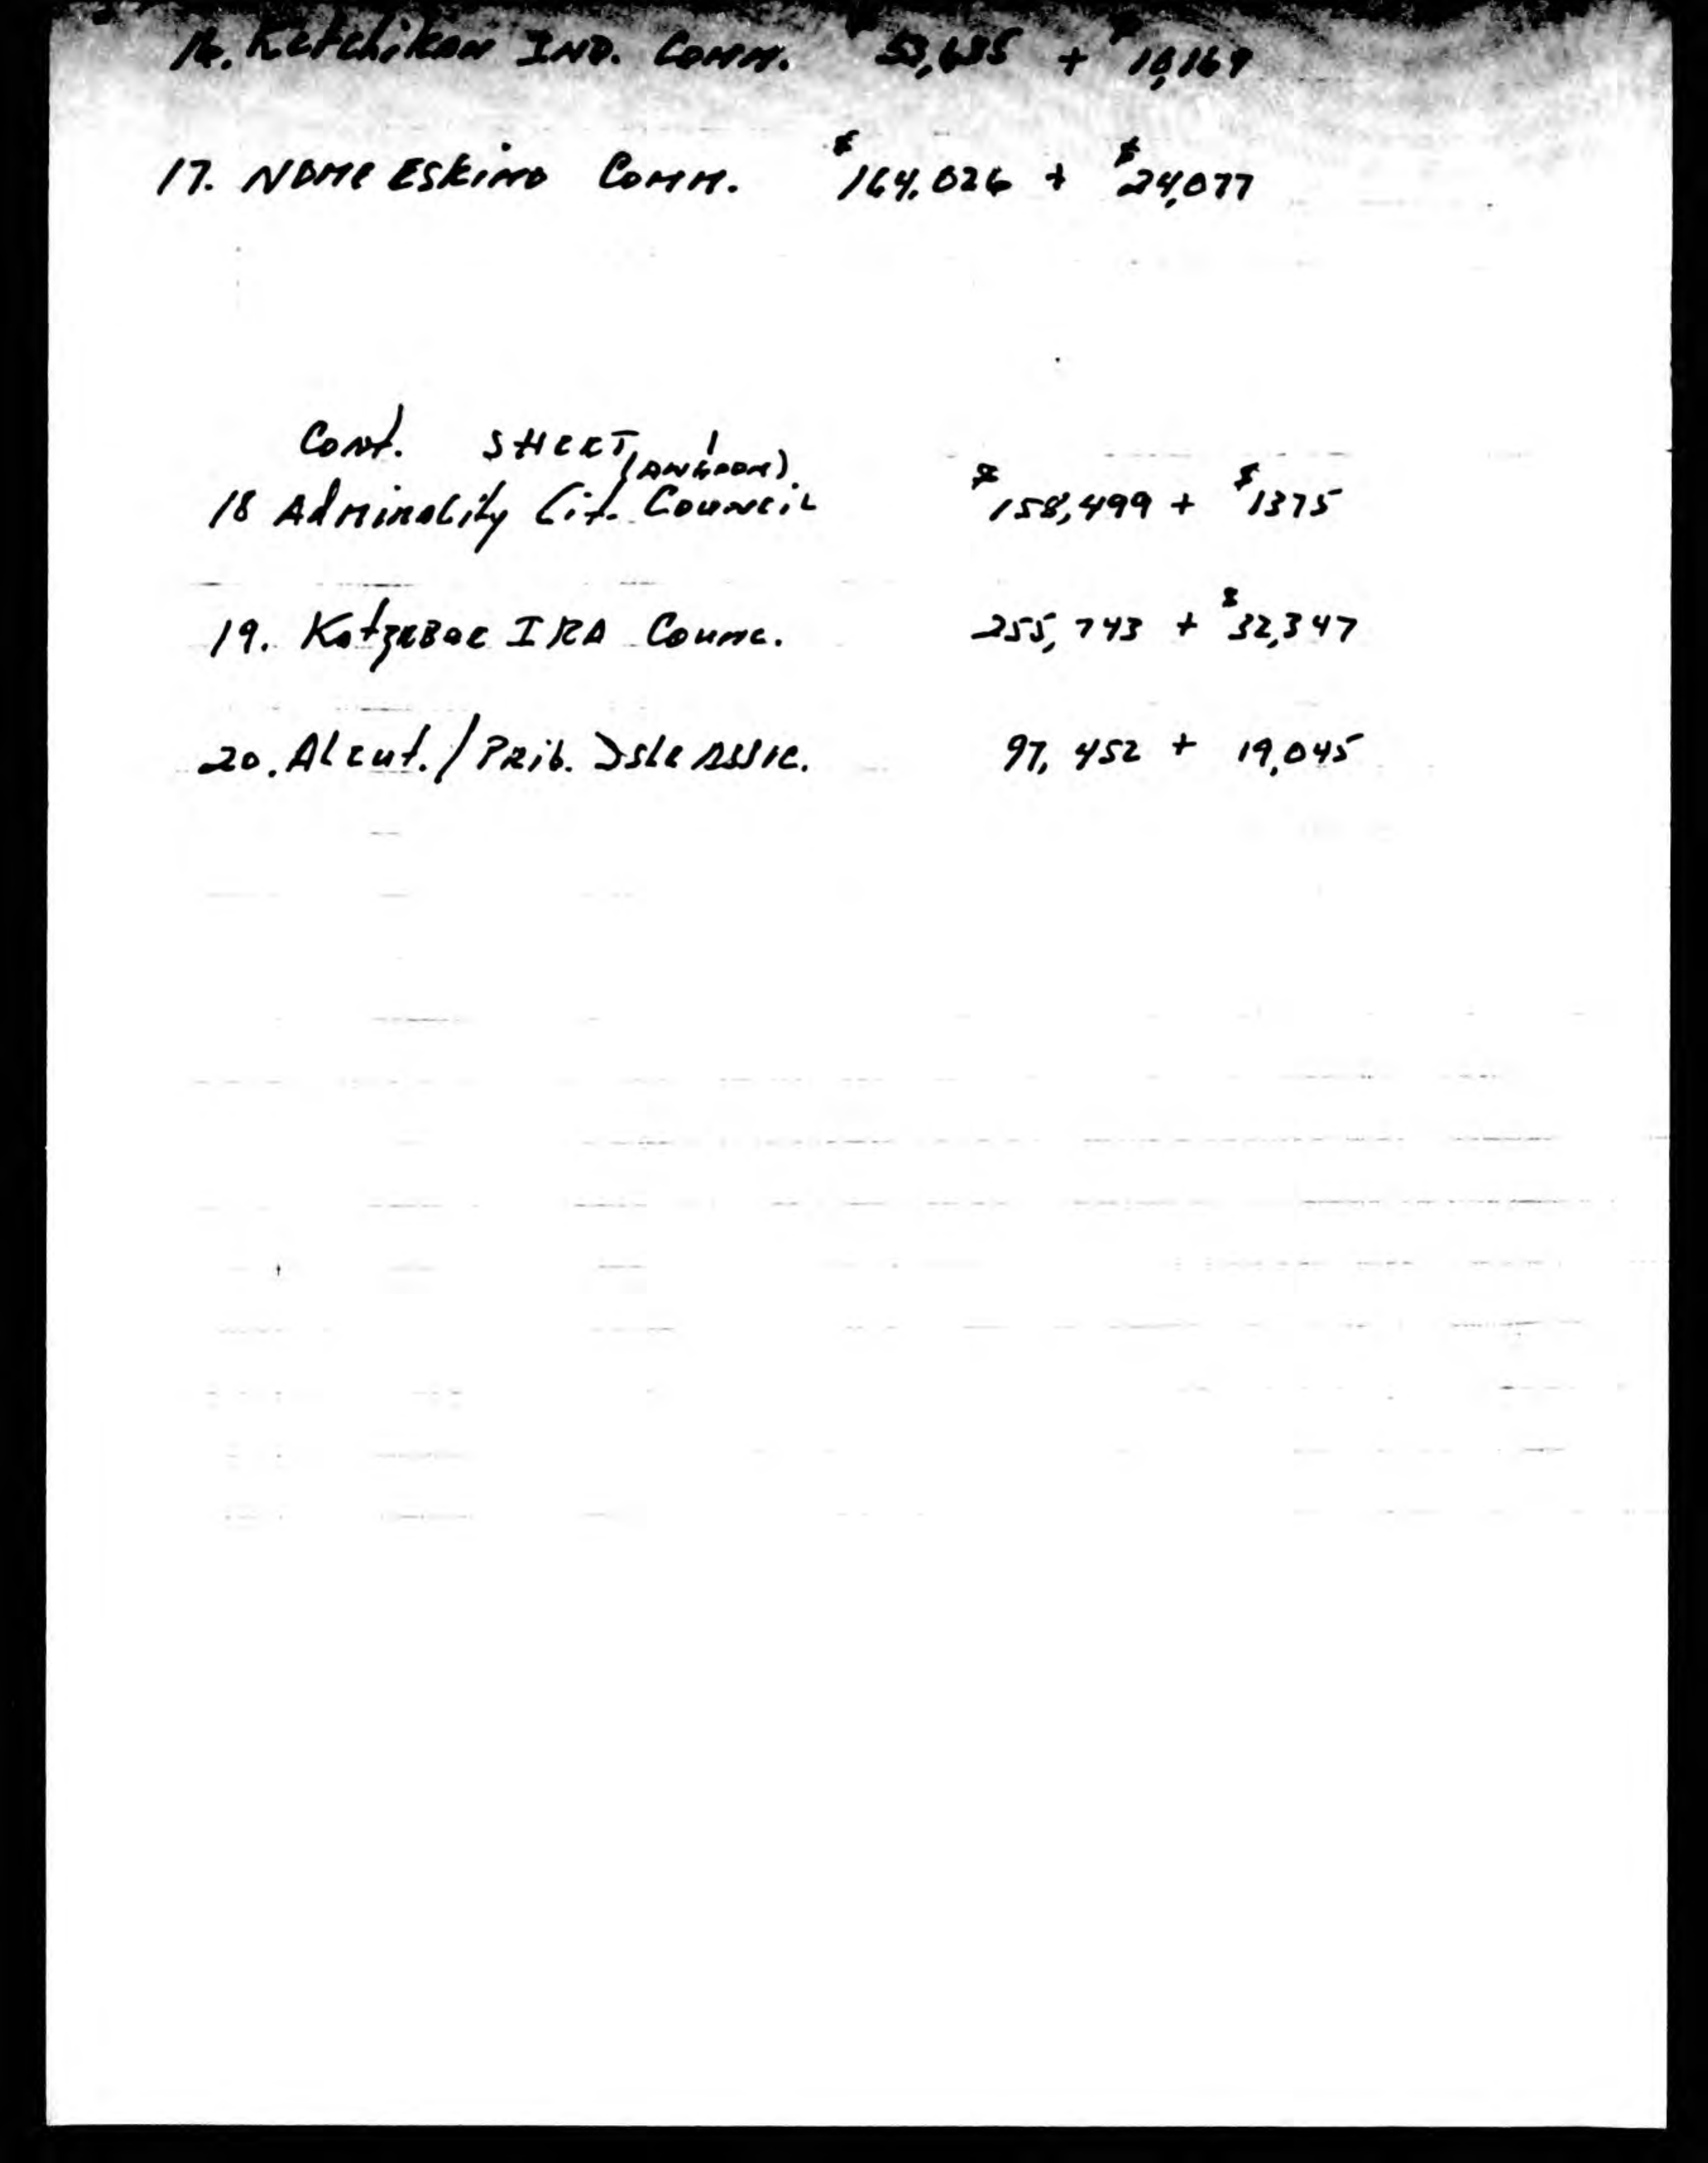 16. Ketchikan IND. Comm. $ 53,635 + $ 10,169
17. NOME ESkimo Comm. $164,026 + $24,077
Cont. SHEET 1
(ANGOON)
18 Adminality Cit. Council $158,499 + $1375
19. Kotzebue IRA Counc. 255,743 + $32,347
20. Aleut./Prib. Isle Assc. 97,452 + 19,045